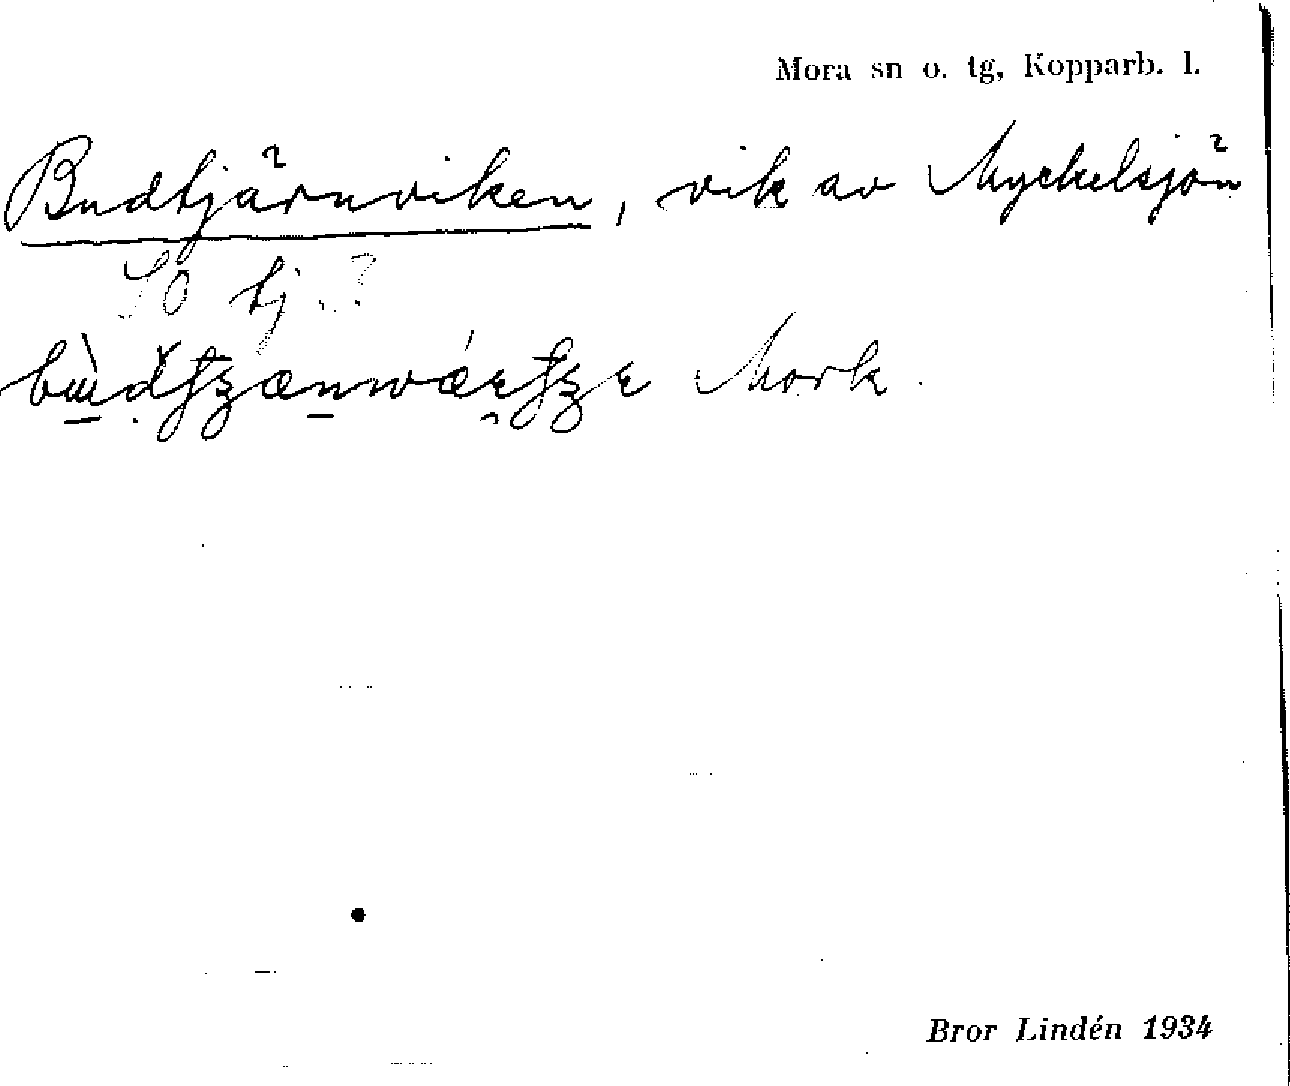 Mora sn o. tg, Kopparb. l.
Budtjärnviken, vik av Myckelsjön
SO tj ?
Mork.
Bror Lindén 1934